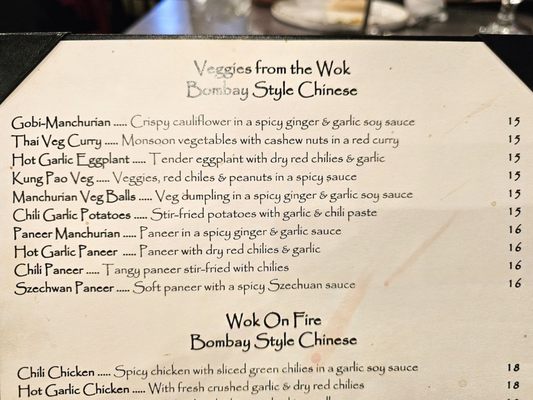 Veggies from the Wok
Bombay Style Chinese
Gobi-Manchurian ..... Crispy cauliflower in a spicy ginger & garlic soy sauce 15
Thai Veg Curry ..... Monsoon vegetables with cashew nuts in a red curry 15
Hot Garlic Eggplant ..... Tender eggplant with dry red chilies & garlic 15
Kung Pao Veg ..... Veggies, red chiles & peanuts in a spicy sauce 15
Manchurian Veg Balls ..... Veg dumpling in a spicy ginger & garlic soy sauce 15
Chili Garlic Potatoes ..... Stir-fried potatoes with garlic & chili paste 15
Paneer Manchurian ..... Paneer in a spicy ginger & garlic sauce 16
Hot Garlic Paneer ..... Paneer with dry red chilies & garlic 16
Chili Paneer ..... Tangy paneer stir-fried with chilies 16
Szechwan Paneer ..... Soft paneer with a spicy Szechuan sauce 16
Wok On Fire
Bombay Style Chinese
Chili Chicken ..... Spicy chicken with sliced green chilies in a garlic soy sauce 18
Hot Garlic Chicken ..... With fresh crushed garlic & dry red chilies 18